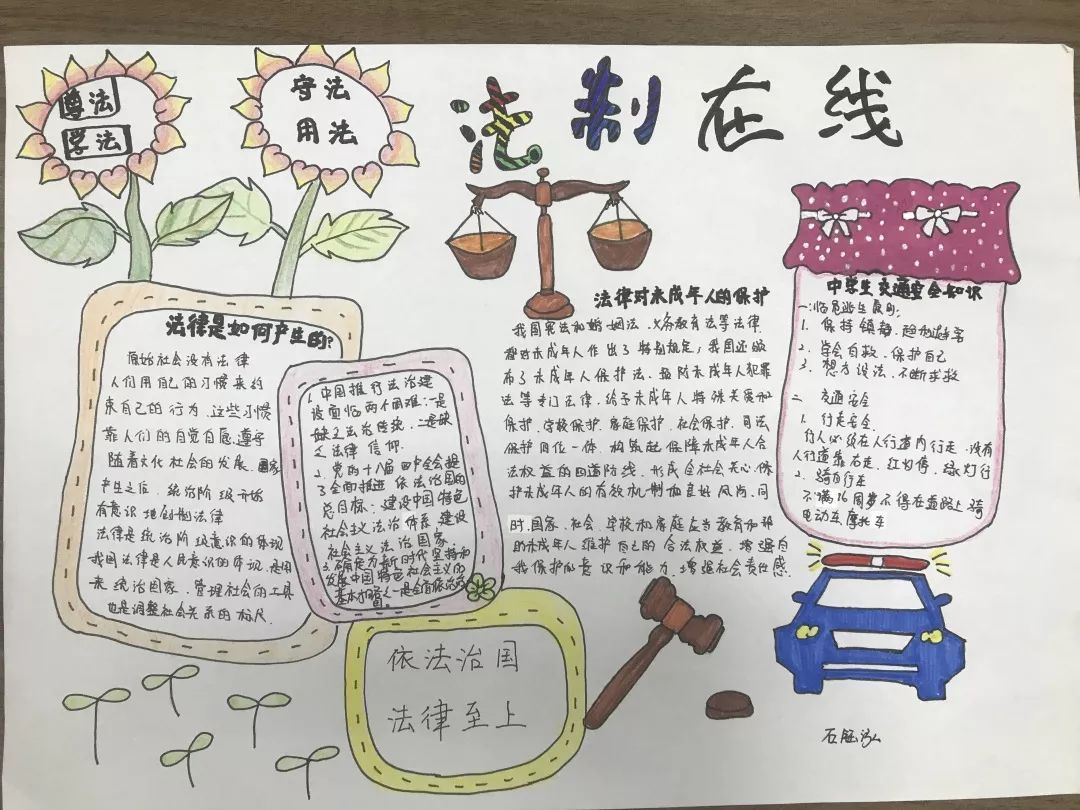 遵法
学法
守法
用法
法制在线
法律是如何产生的?
原始社会没有法律
人们用自己的习惯来约
束自己的行为.这些习惯
靠人们的自觉自愿遵守
随着文化社会的发展.国家
产生之后.统治阶级开始
有意识地创制法律
法律是统治阶级意识的体现
我国法律是人民意识的体现.是用
来统治国家.管理社会的工具
也是调整社会关系的标尺.
1.中国推行法治建
设面临两个困难:一是
缺乏法治传统,二是缺
乏法律信仰.
2.党的十八届四中全会提
了全面推进依法治国的
总目标:建设中国特色
社会主义法治体系.建设
社会主义法治国家.
3.确定为新时代坚持和
发展中国特色社会主义的
基本方略之一是全面依法治国
依法治国
法律至上
法律对未成年人的保护
我国宪法和婚姻法、义务教育法等法律
都对未成年人作出了特别规定;我国还颁
布了未成年人保护法、预防未成年人犯罪
法等专门法律,给予未成年人特殊关爱和
保护.学校保护、家庭保护、社会保护、司法
保护四位一体.构筑起保障未成年人合
法权益的四道防线,形成全社会关心、保
护未成年人的有效机制和良好风尚.同
时.国家、社会、学校和家庭应当教育和帮
助未成年人维护自己的合法权益,增强自
我保护的意识和能力,增强社会责任感.
中学生交通安全知识
一:临危逃生原则:
1. 保持镇静,趋利避害
2. 学会自救、保护自己
3. 想方设法、不断求救
二 交通安全
1. 行走安全
行人必须在人行道内行走.没有
人行道靠右走,红灯停,绿灯行
2. 骑自行走
不满16周岁不得在道路上骑
电动车.摩托车
石